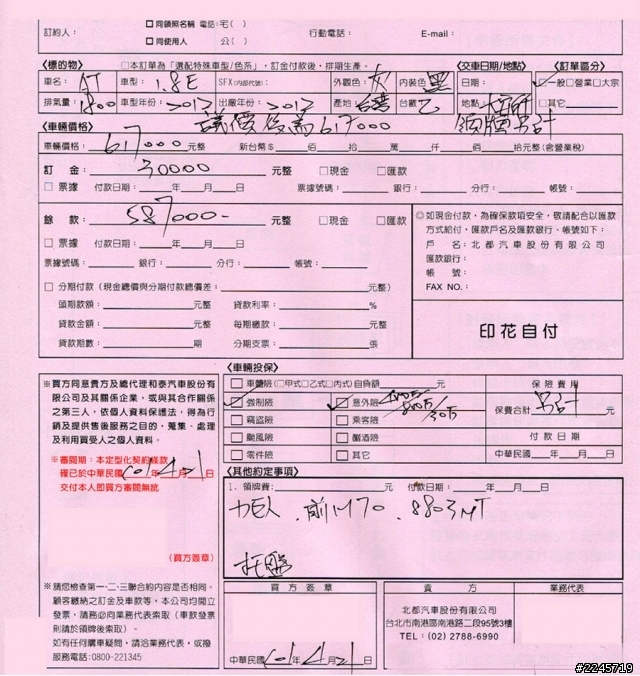 訂約人：
□同領照名稱 電話：宅（ ）
□同使用人 公（ ）
行動電話：
E-mail：
《標的物》 □本訂單為「選配特殊車型/色系」，訂金付款後，排期生產。 《交車日期/地點》 《訂單區分》
車名： AT 車型： 1.8E SFX(內部代號)： 外觀色： 灰 內裝色： 黑 日期： ☑一般□營業□大宗
排氣量： 1800 車型年份： 2012 出廠年份： 2012 產地： 台灣 台數： 乙 地點： □其它
議價後為617000 領牌另計
《車輛價格》
車輛價格： 617000 元整 新台幣$ 佰 拾 萬 仟 佰 拾元整(含營業稅)
訂 金： 30000 元整 □現金 □匯款
□票據 付款日期： 年 月 日 票據號碼： 銀行： 分行： 帳號：
餘 款： 587000- 元整 □現金 □匯款
□票據 付款日期： 年 月 日
票據號碼： 銀行： 分行： 帳號：
□分期付款（現金總價與分期付款總價差： 元整
頭期款額： 元整 貸款利率： %
貸款金額： 元整 每期繳款： 元整
貸款期數： 期 分期支票： 張
◎如現金付款，為確保款項安全，敬請配合以匯款
方式給付，匯款戶名及匯款銀行、帳號如下：
戶 名：北都汽車股份有限公司
匯款銀行：
帳 號：
FAX NO.：
印花自付
※買方同意貴方及總代理和泰汽車股份有
限公司及其關係企業，或與其合作關係
之第三人，依個人資料保護法，得為行
銷及提供售後服務之目的，蒐集、處理
及利用買受人之個人資料。
※審閱期：本定型化契約條款
確已於中華民國 101 年 4 月 21 日
交付本人即買方審閱無訛
(買方簽章)
《車輛投保》
□車體險(□甲式□乙式□丙式)自負額 元 保險費用
☑強制險 ☑意外險 保費合計 另計
□竊盜險 □乘客險
□颱風險 □酗酒險 付款日期
□零件險 □其它 中華民國 年 月 日
《其他約定事項》
1. 領牌費： 元 付款日期： 年 月 日
力巨人．前M70．8803MT
托盤
※請您檢查第一、二、三聯合約內容是否相同。
顧客繳納之訂金及車款等，本公司均開立
發票，請務必向業務代表索取（車款發票
則請於領牌後索取）。
如有任何購車疑問，請洽業務代表，或撥
服務電話:0800-221345
買方簽章 賣方 業務代表
中華民國 101 年 4 月 21 日
北都汽車股份有限公司
台北市南港區南港路二段95號3樓
TEL：(02) 2788-6990
#2245719